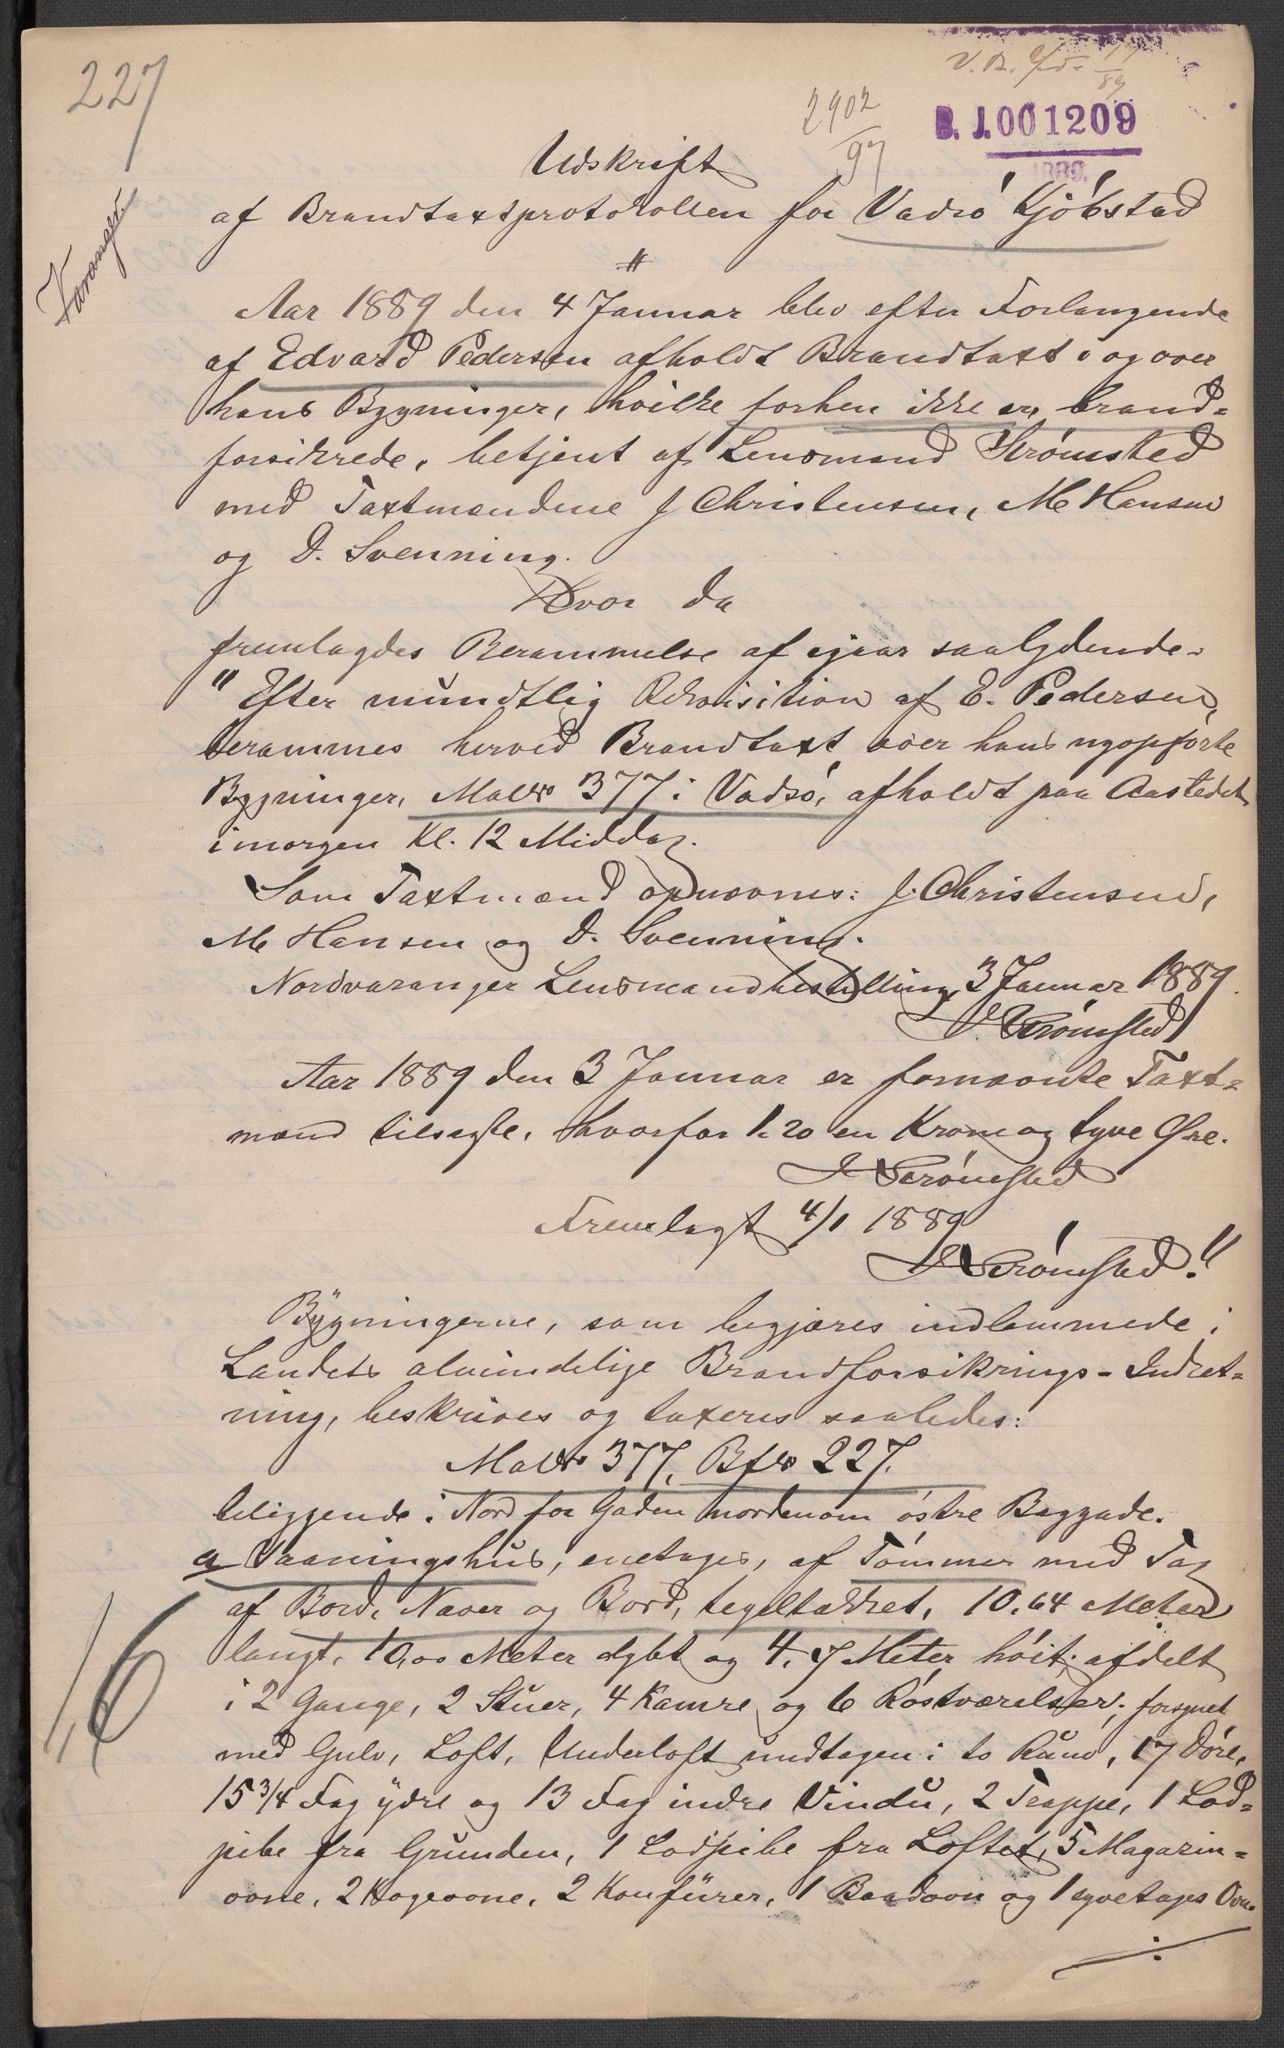 227
V. B.
2902
97
B. J. 001209
1889.
Varanger
Udskrift
af Brandtaxtprotokollen for Vadsø Kjøbstad
Aar 1889 den 4 Januar blev efter Forlangende
af Edvard Pedersen afholdt Brandtaxt i og over
hans Bygninger, hvilke forhen ikke er brand-
forsikrede, betjent af Lensmand Strømsted
med Taxtmændene J Christensen, M Hansen
og D. Svenning.
Hvor da
fremlagdes Berammelse af igaar saalydende.
"Efter mundtlig Rekvisition af E. Pedersen,
berammes herved Brandtaxt over hans nyopførte
Bygninger, Mat No 377 i Vadsø, afholdt paa Aastedet
imorgen Kl. 12 Middag.
Som Taxtmænd opnævnes: J. Christensen,
M Hansen og D. Svenning.
Nordvaranger Lensmandbestilling 3 Januar 1889.
J Strømsted
Aar 1889 den 3 Januar er fornævnte Taxt-
mænd tilsagte, hvorfor 1.20 en Krone og tyve Øre.
J Strømsted
Fremlagt 4/1 1889
J Strømsted."
Bygningerne, som begjæres indlemmede i
Landets almindelige Brandforsikrings-Indret-
ning, beskrives og taxeres saaledes:
Mat No 377, Bf No 227.
beliggende i Nord for Gaden nordenom østre Baggade.
a Vaaningshus, enetages, af Tømmer med Tag
af Bord, Næver og Bord, tegltækket, 10,64 Meter
langt, 10,00 Meter dybt og 4,7 Meter høit; afdelt
i 2 Gange, 2 Stuer, 4 Kamre og 6 Røstværelser; forsynet
med Gulv, Loft, Underloft undtagen i to Rum, 17 Døre,
15 3/4 Fag ydre og 13 Fag indre Vindu, 2 Trappe, 1 Lod-
pibe fra Grunden, 1 Lodpibe fra Loftet, 5 Magazin-
ovne, 2 Kogeovne, 2 Komfurer, 1 Baadovn og 1 tyvetages Ovn.
16